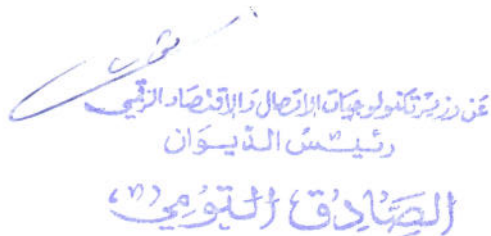 عن وزير تكنولوجيات الاتصال والاقتصاد الرقمي
رئيس الديوان
الصادق التومي